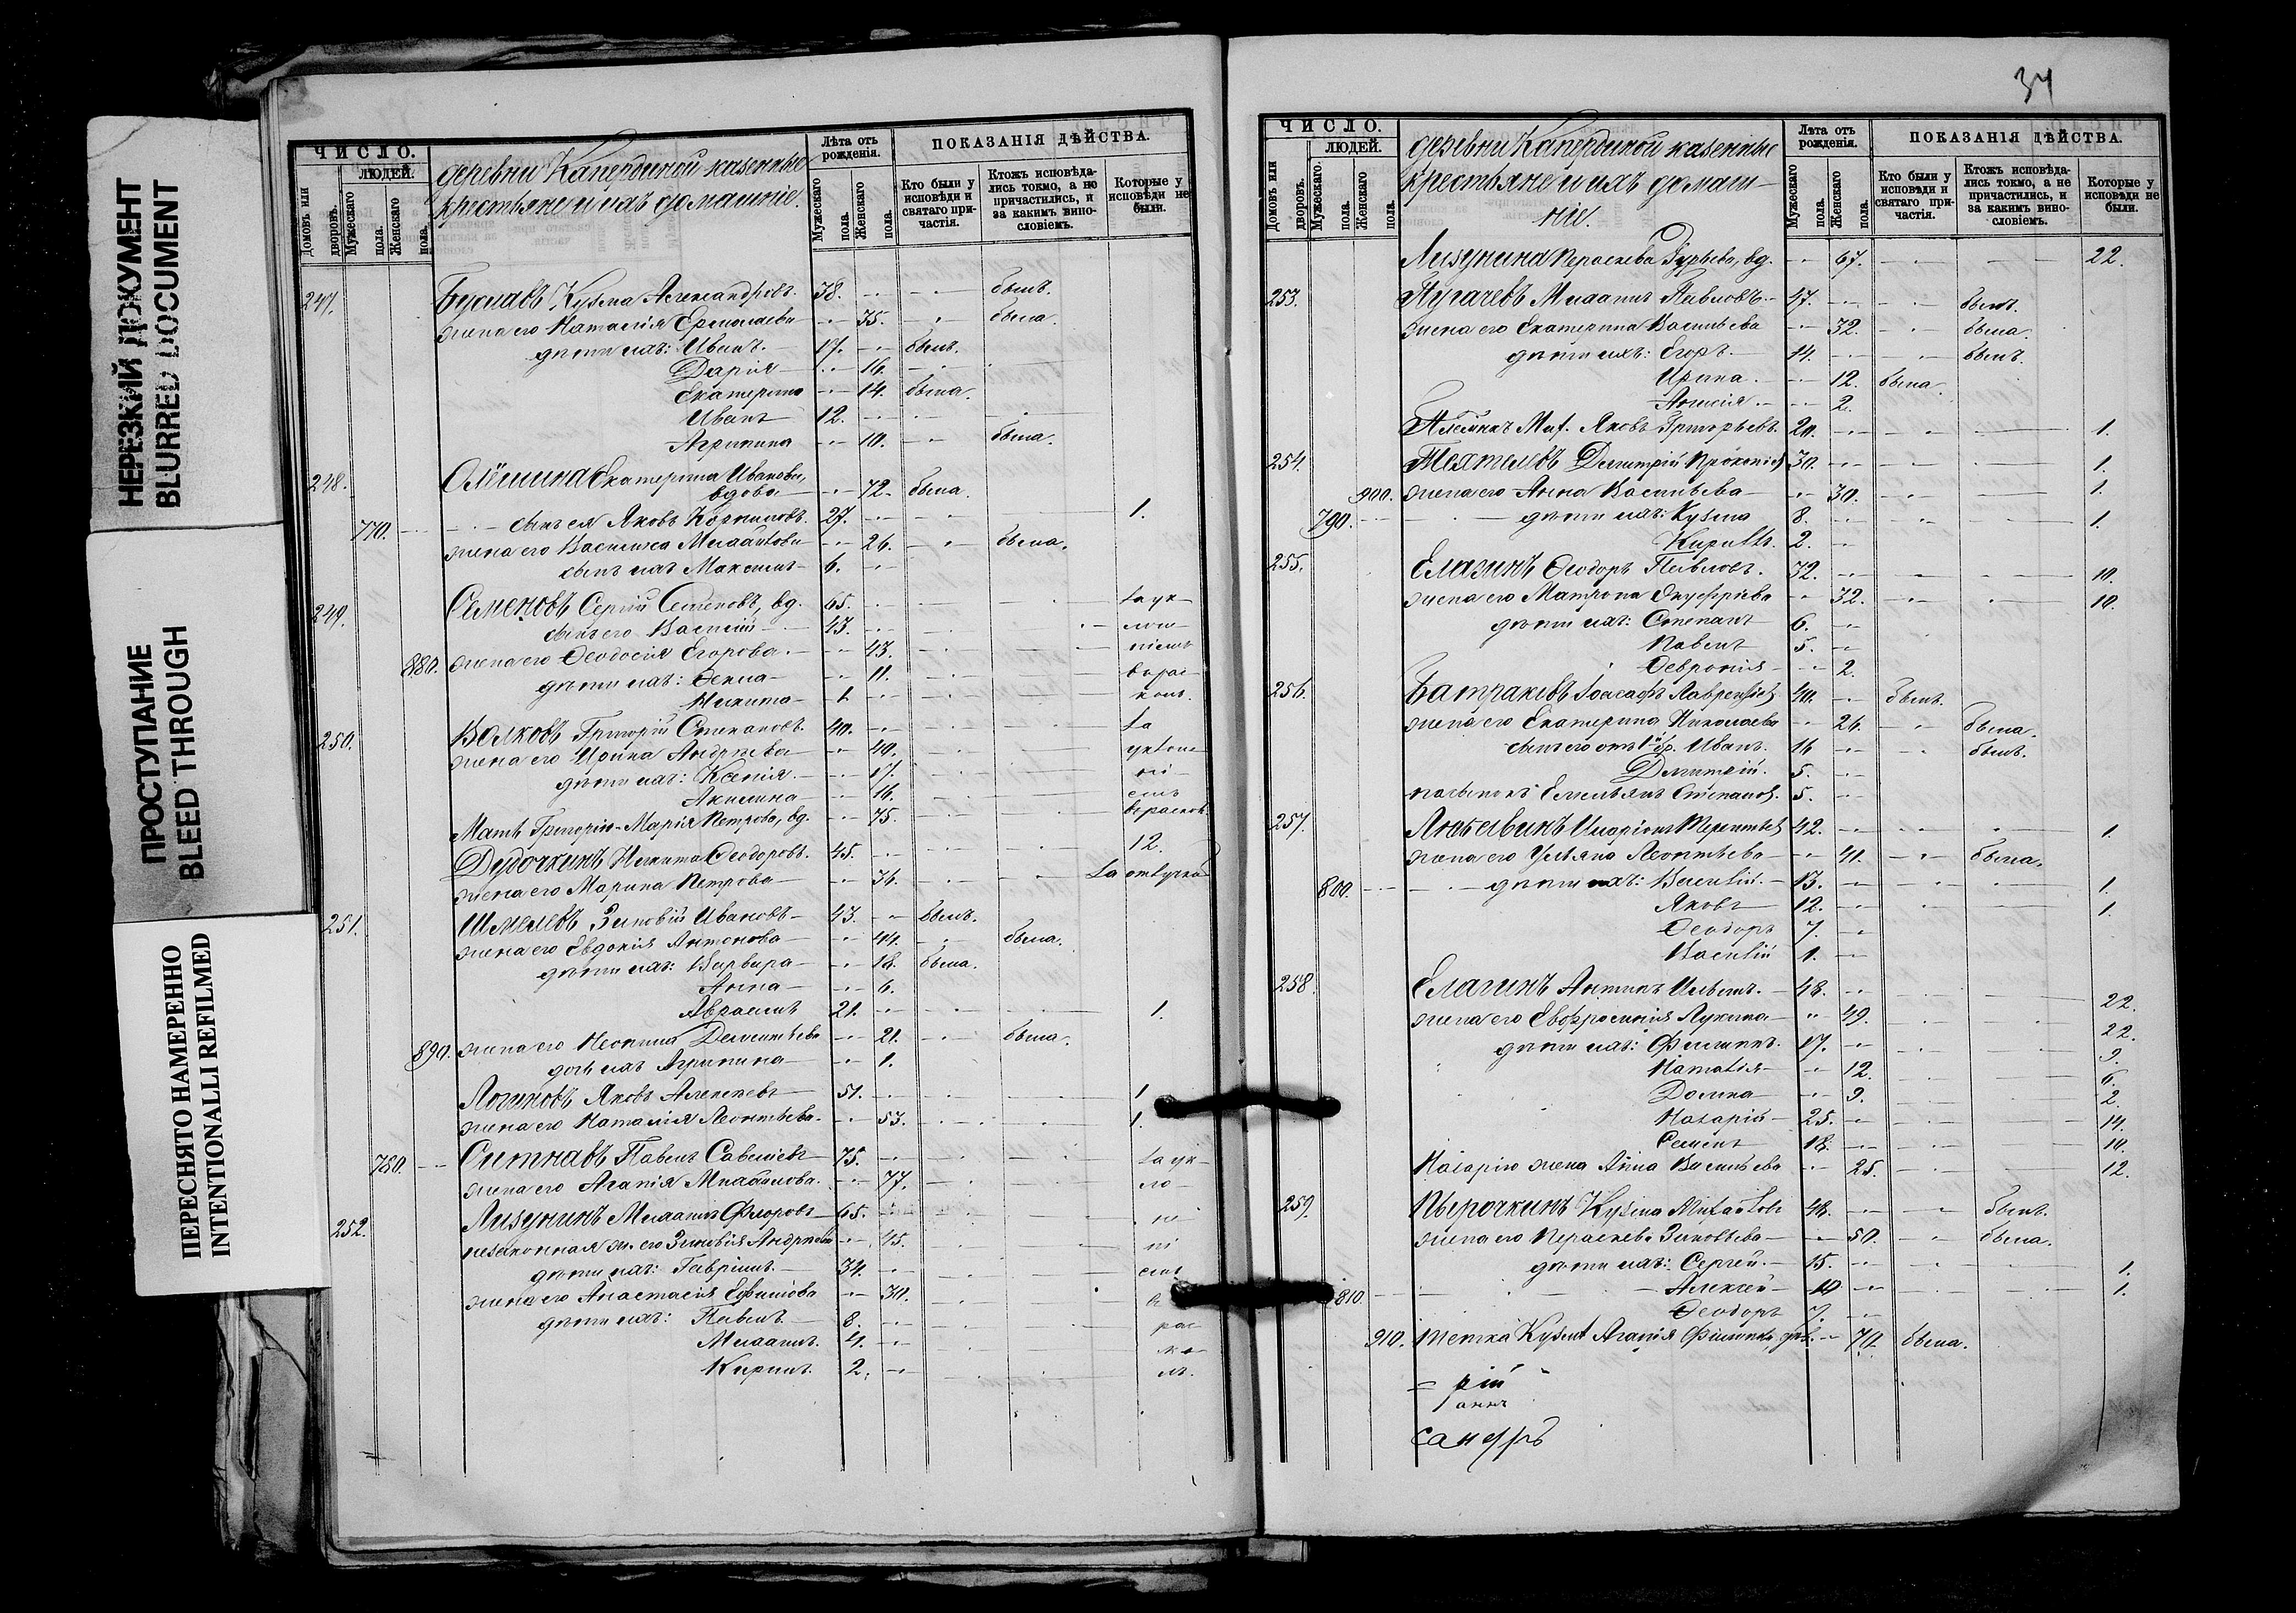 НЕРЕЗКИЙ ДОКУМЕНТ
BLURRED DOCUMENT
ПРОСТУПАНИЕ
BLEED THROUGH
ПЕРЕСНЯТО НАМЕРЕННО
INTENTIONALLI REFILMED
ЧИСЛО.
Домовъ или дворовъ.
ЛЮДЕЙ.
Мужескаго пола.
Женскаго пола.
деревни Капердиной казенные
крестьяне и ихъ домашніе.
Лѣта отъ рожденія.
Мужескаго пола.
Женскаго пола.
ПОКАЗАНІЯ ДѢЙСТВА.
Кто были у исповѣди и святаго причастія.
Ктожъ исповѣдались токмо, а не причастились, и за какимъ винословіемъ.
Которые у исповѣди не были.
247. Кузма Александровъ. 38. былъ.
жена его Наталія Ермолаева 35. была.
дѣти ихъ: Иванъ. 17. былъ.
Дарія 16.
Екатерина 14. была.
Иванъ 12.
Агрипина 10. была.
248. Екатерина Иванова,
вдова 72. была.
770. сынъ ея Яковъ Корниловъ. 27. 1.
жена его Василиса Михайлова 26. была.
сынъ ихъ Максимъ 6.
249. Семеновъ Сергій Семеновъ, вд. 65. за ук-
сынъ его Василій 43. лоне-
880. жена его Ѳеодосія Егорова. 43. ніемъ
дѣти ихъ: Ѳекла 11. въ рас-
Никита 1. колъ.
250. Волковъ Григорій Степановъ. 40. за
жена его Ирина Андреева 40. уклоне
дѣти ихъ: Ксенія. 17. ні-
Акилина 16. емъ
Мать Григорія Марія Петрова, вд. 75. въ расколъ
Дудочкинъ Никита Ѳеодоровъ. 45. 12.
жена его Марина Петрова 34. за отлучкой
251. Шмелевъ Зиновій Ивановъ 43. былъ.
жена его Евдокія Антонова 44. была.
дѣти ихъ: Варвара 18. была.
Анна 6.
Авраамъ 21. 1.
890. жена его Неонила Дементьева 21. была.
дочь ихъ Агрипина 1.
Логиновъ Яковъ Алексѣевъ 51. 1
жена его Наталія Леонтьева. 53. 1.
780. Павелъ Савельевъ 75. за ук-
жена его Агапія Михайлова. 77. ло-
252. Лизунинъ Михаилъ Флоровъ 65. не
незаконная ж. его Зиновія Андреева 45. ні
дѣти ихъ: Гавріилъ. 34. емъ
жена его Анастасія Ефимова 30. въ
дѣти ихъ: Павелъ. 8. рас
Михаилъ. 4. ко
Кирилъ. 2. лъ.
34
ЧИСЛО.
Домовъ или дворовъ.
ЛЮДЕЙ.
Мужескаго пола.
Женскаго пола.
деревни Капердиной казенные
крестьяне и ихъ домаш-
ніе.
Лѣта отъ рожденія.
Мужескаго пола.
Женскаго пола.
ПОКАЗАНІЯ ДѢЙСТВА.
Кто были у исповѣди и святаго причастія.
Ктожъ исповѣдались токмо, а не причастились, и за какимъ винословіемъ.
Которые у исповѣди не были.
Лизунина Параскева Гурьева, вд. 67. 22.
253. Пугачевъ Михаилъ Павловъ. 47. былъ.
жена его Екатерина Васильева 32. была.
дѣти ихъ: Егоръ. 14. былъ.
Ирина. 12. была.
Анисія. 2.
Племян. Мих. Яковъ Григорьевъ. 20. 1.
254. Димитрій Прокопіевъ 30. 1.
900. жена его Анна Васильева 30. 1.
790. дѣти ихъ: Кузма 8. 1.
Кириллъ. 2.
255. Елагинъ Ѳеодоръ Павловъ. 32. 10.
жена его Матрона Онуфріева 32. 10.
дѣти ихъ: Степанъ 6.
Павелъ 5.
Февронія 2.
256. Батраковъ Іоасафъ Лаврентіевъ 40. былъ.
жена его Екатерина Николаева 26. была.
сынъ его отъ 1 бр. Иванъ. 16 былъ.
Димитрій. 5.
пасынокъ Емельянъ Степановъ. 5.
257. Иларіонъ Терентьевъ 42. 1.
жена его Ульяна Леонтьева 41. была.
800. дѣти ихъ: Василій. 13. 1.
Яковъ 12. 1.
Ѳеодоръ 7.
Василій 1.
258. Елагинъ Антипъ Ильинъ. 48. 22.
жена его Евфросинія Лукина 49. 22.
дѣти ихъ: Филиппъ. 17. 9.
Наталія 12. 6.
Домна 9. 2.
Назарій 25. 14.
Семенъ 18. 10.
Назарія жена Анна Васильева 25. 12.
259. Кузма Михайловъ 48. былъ.
жена его Параскева Зиновьева 50. была.
дѣти ихъ: Сергей. 15. 1.
810. Алексей 10 1.
Ѳеодоръ 7.
910. тетка Кузмы Агапія Филипова, дѣв. 70. была.
рій
аннъ